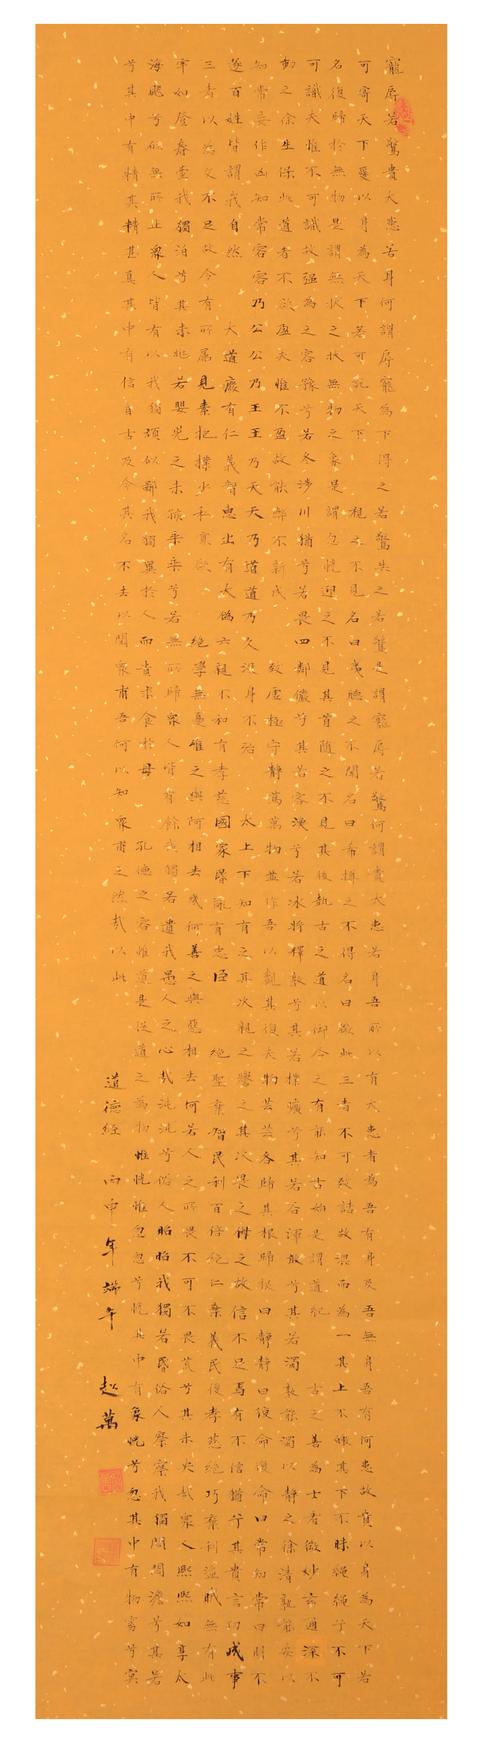 寵辱若驚貴大患若身何謂辱寵為下得之若驚失之若驚是謂寵辱若驚何謂貴大患若身吾所以有大患者為吾有身及吾無身吾有何患故貴以身為天下若
可寄天下愛以身為天下若可託天下 視之不見名曰夷聽之不聞名曰希搏之不得名曰微此三者不可致詰故混而為一其上不皦其下不昧繩繩兮不可
名復歸於無物是謂無狀之狀無物之象是謂忽恍迎之不見其首隨之不見其後執古之道以御今之有能知古始是謂道紀 古之善為士者微妙玄通深不
可識夫惟不可識故强為之容豫兮若冬涉川猶兮若畏四鄰儼兮其若客渙兮若冰將釋敦兮其若樸曠兮其若谷渾敦兮其若濁孰能濁以靜之徐清孰能安以
動之徐生保此道者不欲盈夫惟不盈故能弊不新成 致虛極守靜篤萬物並作吾以觀其復夫物芸芸各歸其根歸根曰靜靜曰復命復命曰常知常曰明不
知常妄作凶知常容容乃公公乃王王乃天天乃道道乃久沒身不治 太上下知有之其次親之譽之其次畏之侮之故信不足焉有不信猶兮其貴言功成事
遂百姓皆謂我自然 大道廢有仁義智惠出有大偽六親不和有孝慈國家昏亂有忠臣 絕聖棄智民利百倍絕仁棄義民復孝慈絕巧棄利盜賊無有此
三者以為文不足故令有所屬見素抱樸少私寡欲 絕學無憂唯之與阿相去幾何善之與惡相去何若人之所畏不可不畏荒兮其未央哉衆人熙熙如享太
牢如登春臺我獨泊兮其未兆若嬰兒之未孩乘乘兮若無所歸衆人皆有餘我獨若遺我愚人之心哉沌沌兮俗人昭昭我獨若昏俗人察察我獨悶悶澹兮其若
海飂兮似無所止衆人皆有以我獨頑似鄙我獨異於人而貴求食於母 孔德之容惟道是從道之為物惟恍惟忽忽兮恍其中有象恍兮忽其中有物窈兮冥
兮其中有精其精甚真其中有信自古及今其名不去以閱衆甫吾何以知衆甫之然哉以此
道德經 丙申年端午 趙萬